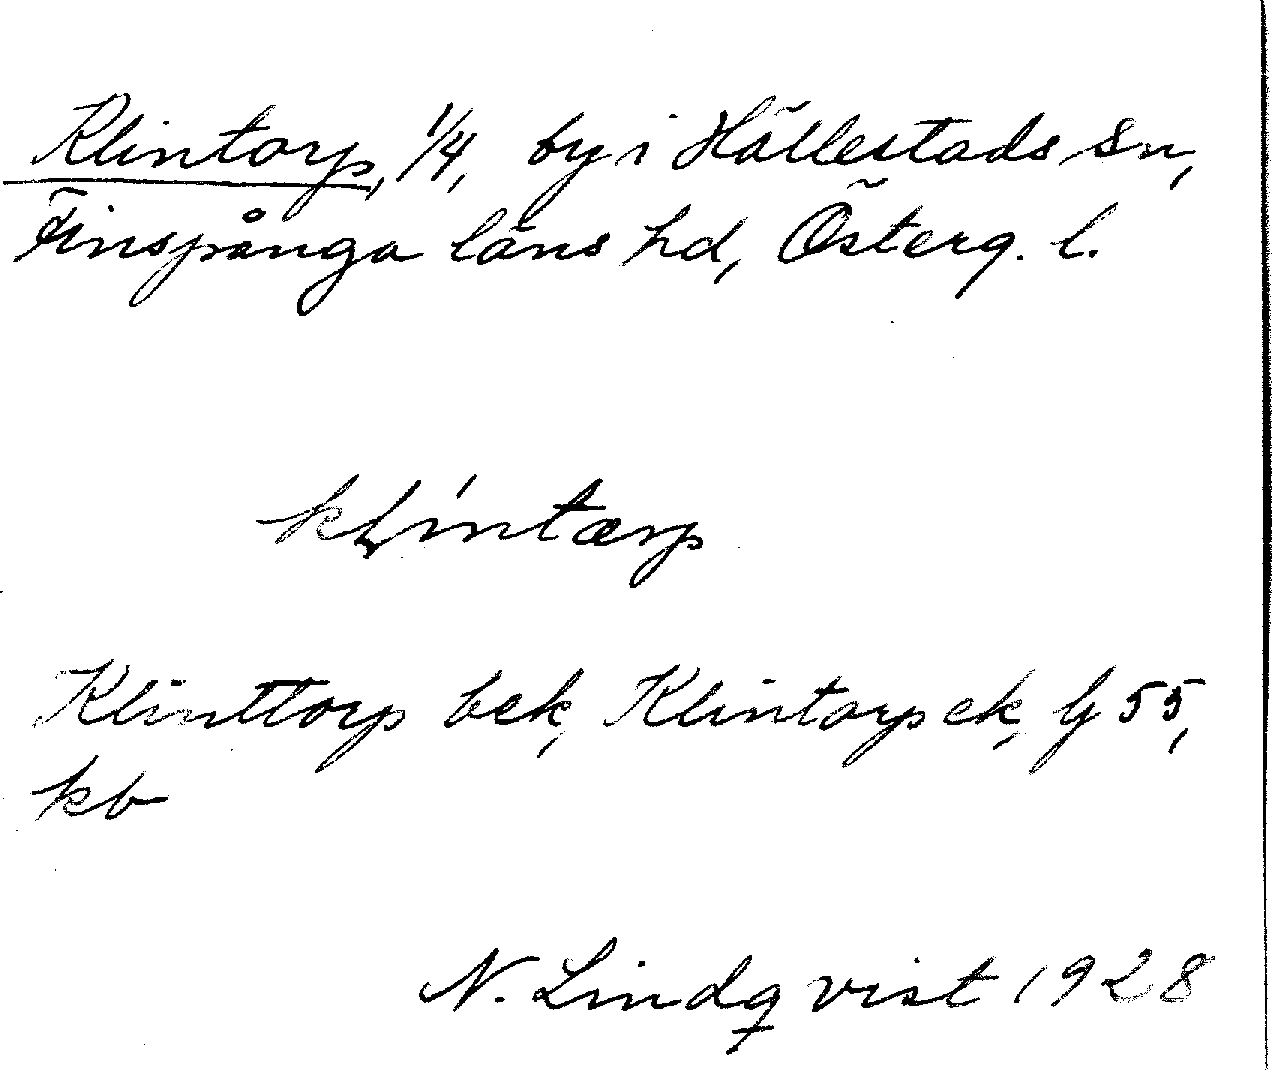 Klintorp, 1/4, by i Hällestads sn,
Finspånga läns hd, Österg. l.
klíntærp
Klinttorp bek, Klintorp ek, G 55,
kb
N. Lindqvist 1928